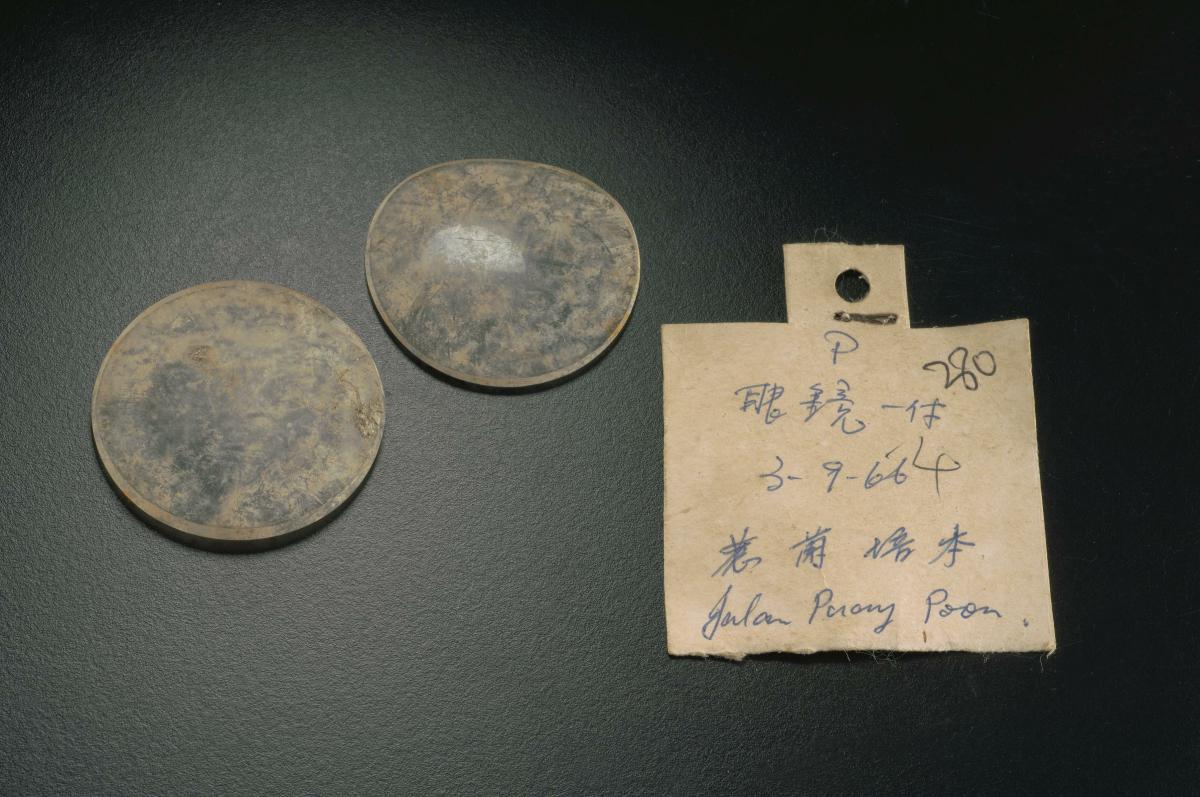 P
280
眼鏡一付
3-9-664
惹蘭培本
Jalan Puay Poon.